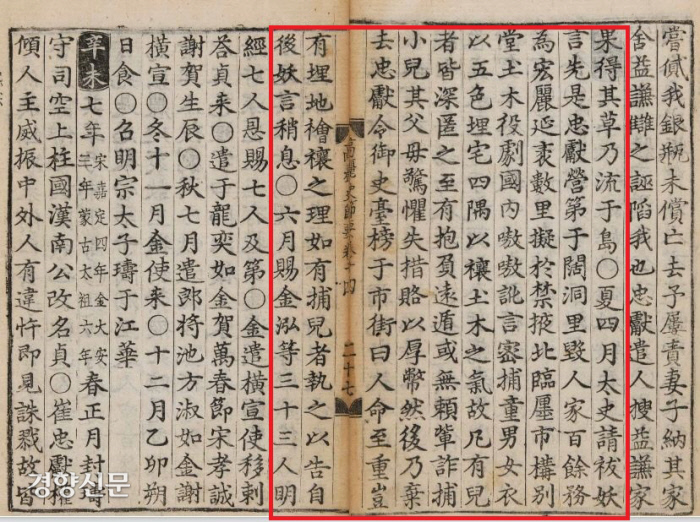 嘗貸我銀瓶未償亡去予屢責妻子納其家
舍益謙讎之誣陷我也忠獻遣人搜益謙家
果得其草乃流于島○夏四月太史請祓妖
言先是忠獻營第于闊洞里毀人家百餘務
為宏麗延袤數里擬於禁掖北臨㕓市構別
堂土木役劇國內嗷嗷訛言密捕童男女衣
以五色埋宅四隅以禳土木之氣故凡有兒
者皆深匿之至有抱負遠遁或無賴輩詐捕
小兒其父母驚懼失措賂以厚幣然後乃棄
去忠獻令御史臺榜于市街曰人命至重豈
高麗史節要卷十四 二十七
有埋地禬禳之理如有捕兒者執之以告自
後妖言稍息○六月賜金泓等三十三人明
經七人恩賜七人及第○金遣橫宣使移剌
荅貞來○遣于龍奕如金賀萬春節宋孝誠
謝賀生辰○秋七月遣郎將池方淑如金謝
橫宣○冬十一月金使來○十二月乙卯朔
日食○召明宗太子璹于江華
辛未七年宋嘉定四年金大安三年蒙古太祖六年春正月封璹
守司空上柱國漢南公改名貞○崔忠獻權
傾人主威振中外人有違忤即見誅戮故皆
경향신문